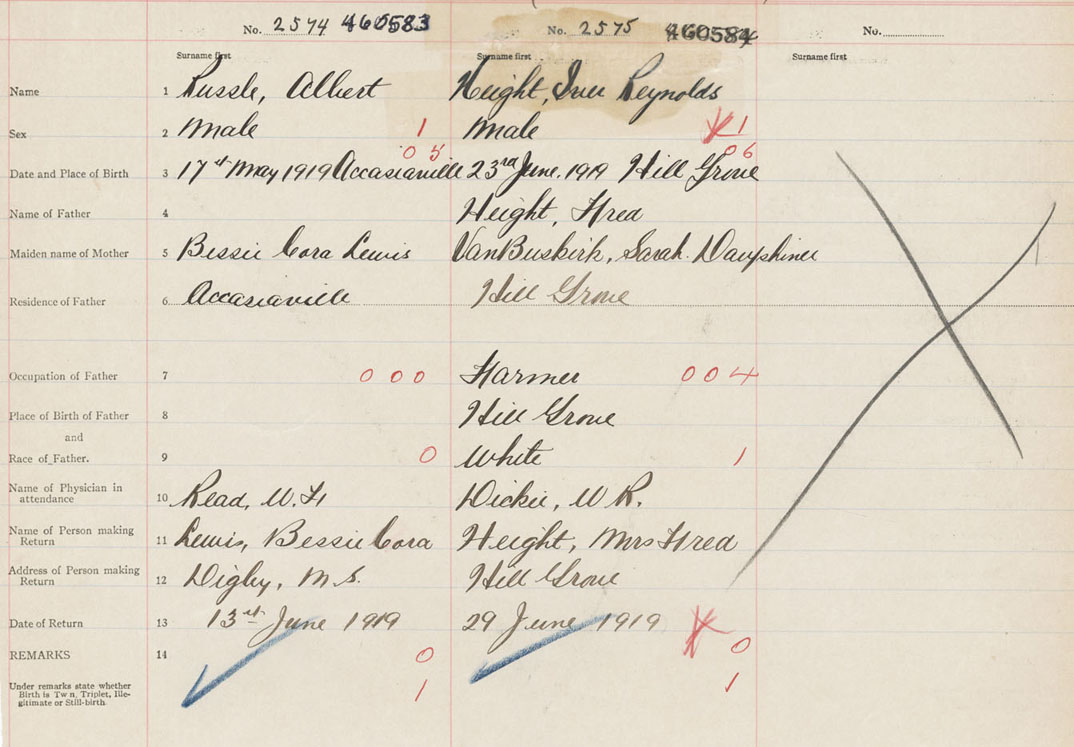 No. 2574 460583 No. 2575 460584 No.
Surname first Surname first Surname first
Name 1 Russle, Albert Height, Reynolds
Sex 2 Male 1 Male 1
05 06
Date and Place of Birth 3 17th May 1919 Accasiaville 23rd June. 1919 Hill Grove
Name of Father 4 Height, Fred
Maiden name of Mother 5 Bessie Cora Lewis VanBuskirk, Sarah Dauphinee
Residence of Father 6 Accasiaville Hill Grove
Occupation of Father 7 000 Farmer 004
Place of Birth of Father 8 Hill Grove
and
Race of Father. 9 0 White 1
Name of Physician in
attendance 10 Read, W. F. Dickie, W R.
Name of Person making
Return 11 Lewis, Bessie Cora Height, Mrs Fred
Address of Person making
Return 12 Digby, N.S. Hill Grove
Date of Return 13 13th June 1919 29 June 1919
REMARKS 14 0 0
Under remarks state whether
Birth is Twin, Triplet, Ille-
gitimate or Still-birth. 1 1